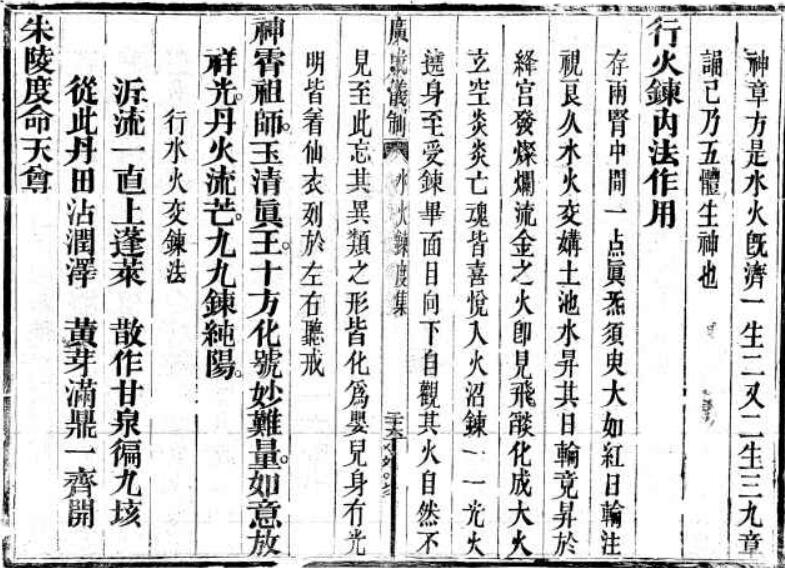 神章方是水火旣濟一生二又二生三九章
誦己乃五體生神也
行火鍊內法作用
存兩腎中間一点眞炁須臾大如紅日輪注
視良久水火交媾土池水昇其日輪竟昇於
絳宮發燦爛流金之火卽見飛燄化成大火
玄空炎炎亡魂皆喜悅入火沼鍊一一光火
遶身至受鍊畢面目向下自觀其火自然不
廣成儀制 水火鍊度集 二十六
見至此忘其異類之形皆化爲嬰兒身有光
明皆着仙衣列於左右聽戒
神霄祖師。玉清眞王。十方化號妙難量。如意放
祥光。丹火流芒。九九鍊純陽。
行水火交鍊法
泝流一直上蓬萊 散作甘泉徧九垓
從此丹田沾潤澤 黃芽滿鼎一齊開
朱陵度命天尊